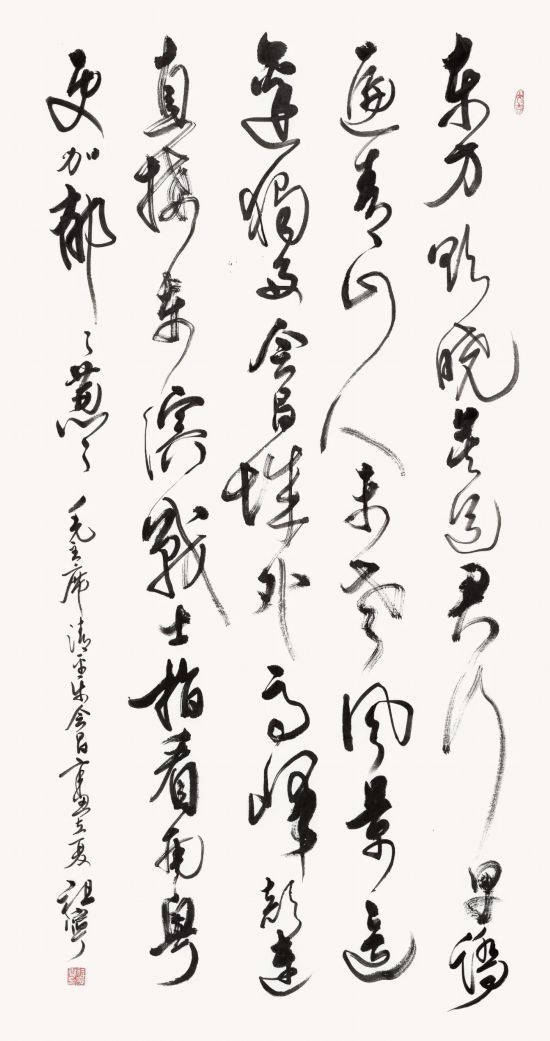 东方欲晓莫道君行早踏
遍青山人未老风景這
邊獨好会昌城外高峰颠連
直接东溟戰士指看南粤
更加郁々葱々 毛主席清平乐会昌 立夏